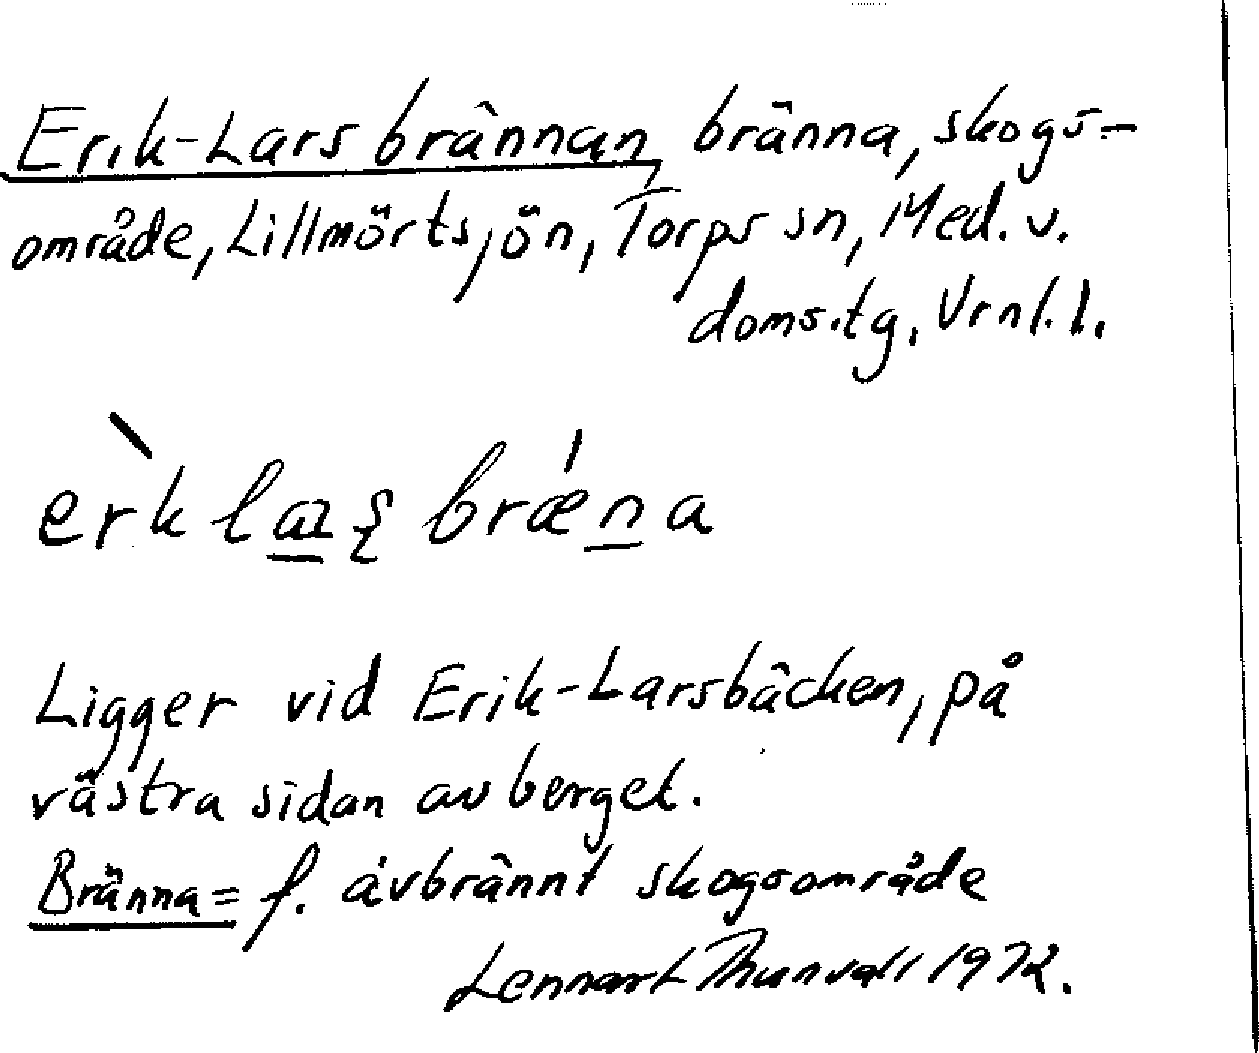 Erik-Larsbrännan, bränna, skogs-
område, Lillmörtsjön, Torps sn, Med. v.
doms.tg, Vrnl. l.
Ligger vid Erik-Larsbäcken, på
västra sidan av berget.
Bränna = f. avbrännt skogsområde
Lennart Thunvall 1972.